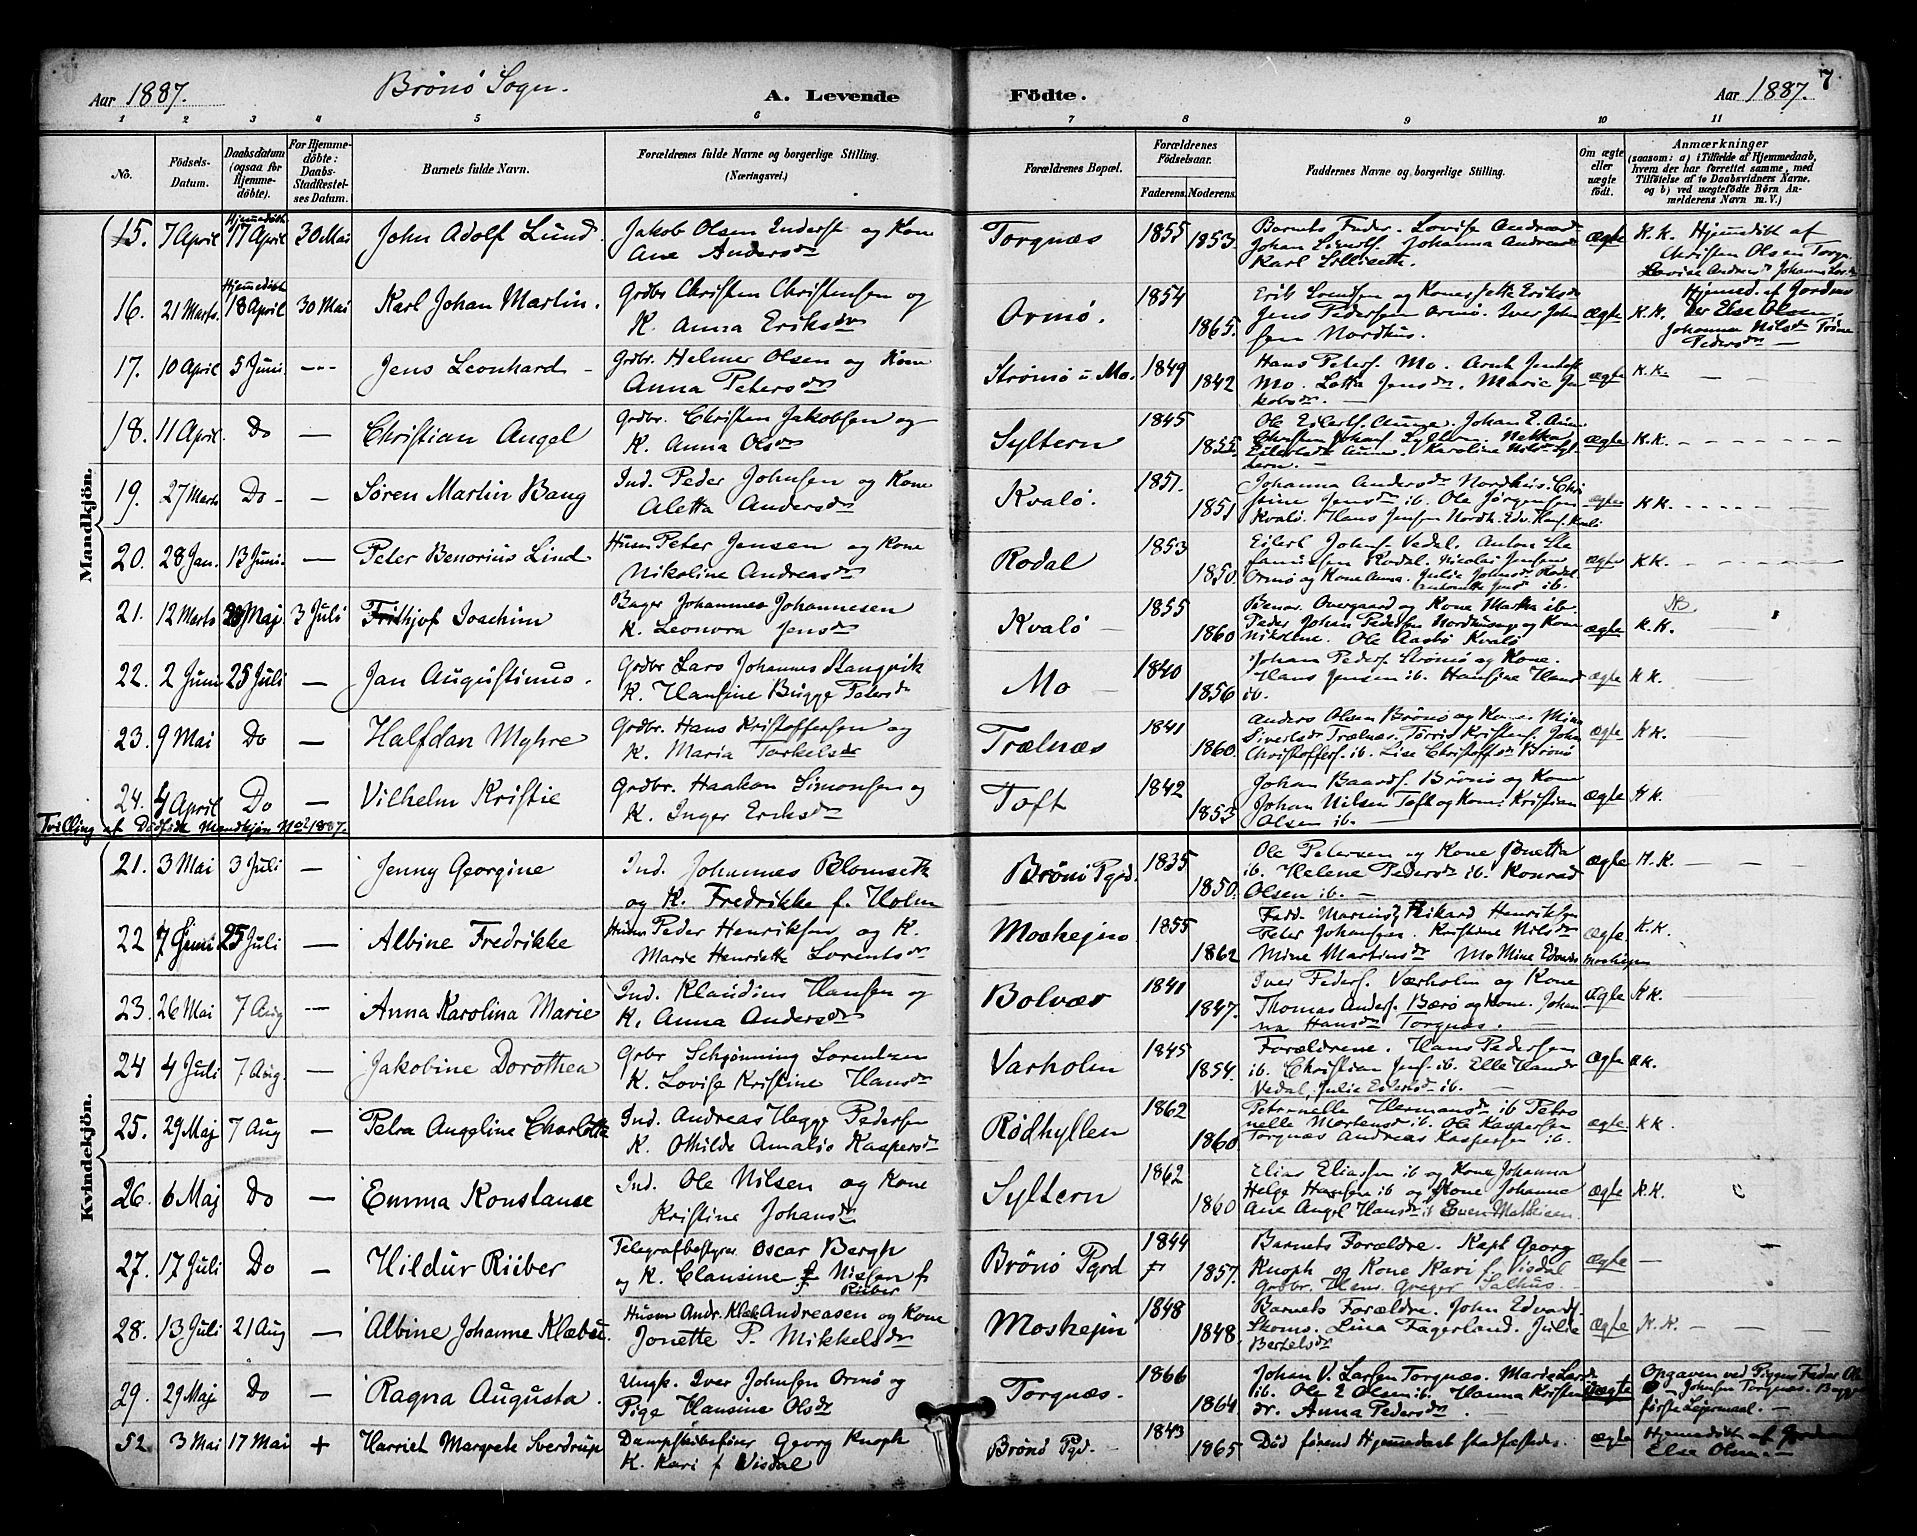 Aar 1887. Brönö Sogn. A. Levende Födte. Aar 1887. 7
1 2 3 4 5 6 7 8 9 10 11
No. Födsels-Datum. Daabsdatum (ogsaa for Hjemmedöbte). For Hjemmedöbte: Daabs-Stadfæstelses Datum. Barnets fulde Navn. Forældrenes fulde Navne og borgerlige Stilling. (Næringsvei.) Forældrenes Bopæl. Forældrenes Födselsaar. Faderens. Moderens. Faddernes Navne og borgerlige Stilling. Om ægte eller uægte födt. Anmærkninger (saasom: a) i Tilfælde af Hjemmedaab, hvem der har forrettet samme, med Tilföielse af to Daabsvidners Navne, og b) ved uægtefödte Börn Anmelderens Navn m. V.)
Mandkjön.
15. 7 April Hjemmedöbt 17 April 30 Mai John Adolf Lund Jakob Olsen Enderst og Kone Torgnæs 1855 Barnets Fader. Lovise Andreasd ægte K.K. Hjemdöbt af
Ane Andersdr 1853 Johan Eilertf. Johanna Andreasd Christen Olsen Torgn.
Karl Lillisæth.
16. 21 Marts. Hjemmedöbt 18 April 30 Mai Karl Johan Martin. Grdbr Christen Christensen og Ormö. 1854 Erik Svendsen og Kone Jette Eriksdr ægte K.K. Hjemd. af Jordemo
K. Anna Eriksdr 1865. Jens Pedersen Ormö. Iver John der Else Olsen.
sen Nordhus. Johanna Nilsdr Trine
Pedersdr —
17. 10 April 5 Juni --- Jens Leonhard - Grdbr. Helmer Olsen og Kone Strömö u. Mo. 1849 Hans Petersf. Mo. Arnt Jentoft ægte K.K. — —
Anna Petersdr 1842 Mo. Lotta Jensdr. Marie Ja
kobsdr. —
18. 11 April. Do — Christian Angel Grdbr. Christen Jakobsen og Syltern 1845 Ole Eilertf. Aune. Johan E. Aune ægte K.K. - - - -
K. Anna Olsdr 1855. Christen Johanf. Syltern.
Eilertsdr Aune. Karoline Nilsdr Syl
tern. —
19. 27 Marts Do - - Søren Martin Bang Ind. Peder Johnsen og Kone Kvalö. 1851. Johanna Andersdr Nordhus. Chri ægte KK. - - - -
Aletta Andersdr 1851 stine Jensdr ib. Ole Jörgensen
Kvalö. Hans Jensen Nordh. Edv. Hansf. Kvalö
20. 28 Jan. 13 Juni. — Peter Benorius Lind Husm Peter Jensen og Kone Rodal 1853 Eilert Johnsf. Vedal. Anton Ste ægte KK.
Nikoline Andreasdr 1850. fanussen Rodal. Nicolai Jensen
Ormö og Kone Anna. Julie Johnsdr Rodal
21. 12 Marts Maj 3 Juli Frithjof Joachim Bager Johannes Johannesen Kvalö — 1855 Benor. Overgaard og Kone Martha ib. ægte K.K. NB.
K. Leonora Jensdr 1860 Peder Johan Pedersen Nordhus og Kone
Nikoline. Ole Aasbö Kvalö
22. 2 Juni 25 Juli — Jan Augustinus. Grdbr Lars Johannes Stangvik Mo — 1840 Johan Pedersf. Strömö og Kone. ægte KK.
K. Hansine Bugge Petersdr 1856 Hans Jensen ib. Hansine Hansd
ib.
23. 9 Mai Do — Halfdan Myhre Grdbr. Hans Kristoffersen og Trælnæs 1841 Anders Olsen Brönö og Kone. Mina ægte KK.
K. Maria Torkelsdr 1860. Sivertsdr Trælnæs. Torris Kristensf. John
Christoffersf. ib. Lise Christoffsdr Brönö
24. 4 April Do — Vilhelm Kristie Grdbr. Haakon Simonsen og Toft 1842 Johan Baardsf. Brönö og Kone ægte KK.
K. Inger Eriksdr 1853 Johan Nilsen Toft og Kone. Kristian
Olsen ib. —
Tvilling af Dödfödt Mandkjön No 2 1887.
Kvindekjön.
21. 3 Mai 3 Juli — Jenny Georgine Ind. Johannes Blomseth Brönö Pgrd. 1835 Ole Petersen og Kone Jonetta ægte K.K. — — —
og K. Fredrikke f. Holm 1850. ib. Helene Pedersdr ib. Konrad
Olsen ib. —
22 7 Juni 25 Juli — Albine Fredrikke Husm Peder Henriksen og K. Moshejm. 1855 Fadd. Marius Rikard Henriksen ægte. K.K.
Marie Henriette Lorentsdr 1862 Peter Johansen. Kristine Nilsdr
Mine Martinsdr Mo Mine Edvardsd Moshejm
23. 26 Mai 7 Aug — Anna Karolina Marie Ind. Klaudius Hansen og Bolvær 1841 Iver Pedersf. Værholm og Kone ægte KK.
K. Anna Andersdr 1847. Thomas Andersf. Bærö og Kone. Johan
na Hansdr Torgnæs. —
24 4 Juli 7 Aug. — Jakobine Dorothea Grbr Schjönning Lorentzen Varholm 1845 Forældrene. Hans Pedersen ægte KK.
K. Lovise Kristine Hansdr 1854. ib. Christian Jensf. ib. Elle Hansdr
Vedal, Julie Eilertsdr ib. —
25. 29 Maj 7 Aug — Petra Angeline Charlotte Ind. Andreas Hegge Pedersen Rödhyllen 1862 Petronelle Hermansdr ib Petro ægte. KK.
K. Othilde Amalie Kaspersdr 1860 nelle Martensdr ib. Ole Kaspersen
Torgnæs Andreas Kaspersen ib.
26. 6 Maj Do — Emma Konstanse Ind. Ole Nilsen og Kone Syltern 1862 Elias Eliassen ib og Kone Johanna ægte K.K.
Kristine Johansdr 1860 Helge Hansen ib og Kone Johanne
Ane Angel Hansdr ib Even Mathisen.
27. 17 Juli Do — Hildur Riiber Telegrafbestyrer Oscar Bergh Brönö Pgrd 1844 Barnets Forældre. Kapt Georg ægte —
og K. Clausine Nissen f. Riiber 1857. Knoph og Kone Kari f. Visdal
Grdbr. Hans Greger Salhus.
28. 13 Juli 21 Aug — Albine Johanne Klæbu. Husm Andr. Klæb Andreasen og Kone Moshejm 1848 Barnets Forældre. John Edvardf. ægte K.K. — — —
Jonette P. Mikkelsdr 1848. Skoms. Lina Fagerland. Julie
Bertelsdr
29. 29 Maj Do — Ragna Augusta. Ungk. Iver Johnsen Ormö og Torgnæs. 1866 Johan V. Larsen Torgnæs. Maria Larsd uægte Opgaven ved Pigens Fader Ole
Pige Hansine Olsdr 1864 ib. Ole E Olsen ib. Hanna Kristens Johnsen Torgnæs. Begges
dr. Anna Pedersdr. förste Lejermaal. —
52. 3 Mai 17 Mai + Harriet Margrete Sverdrup Dampskibsförer Georg Knoph Brönö Pgd. 1843 Död förend Hjemmedaab stadfæstedes. ægte Hjemedöbt af Jordemo
K. Kari f Visdal 1865 Else Olsen. —